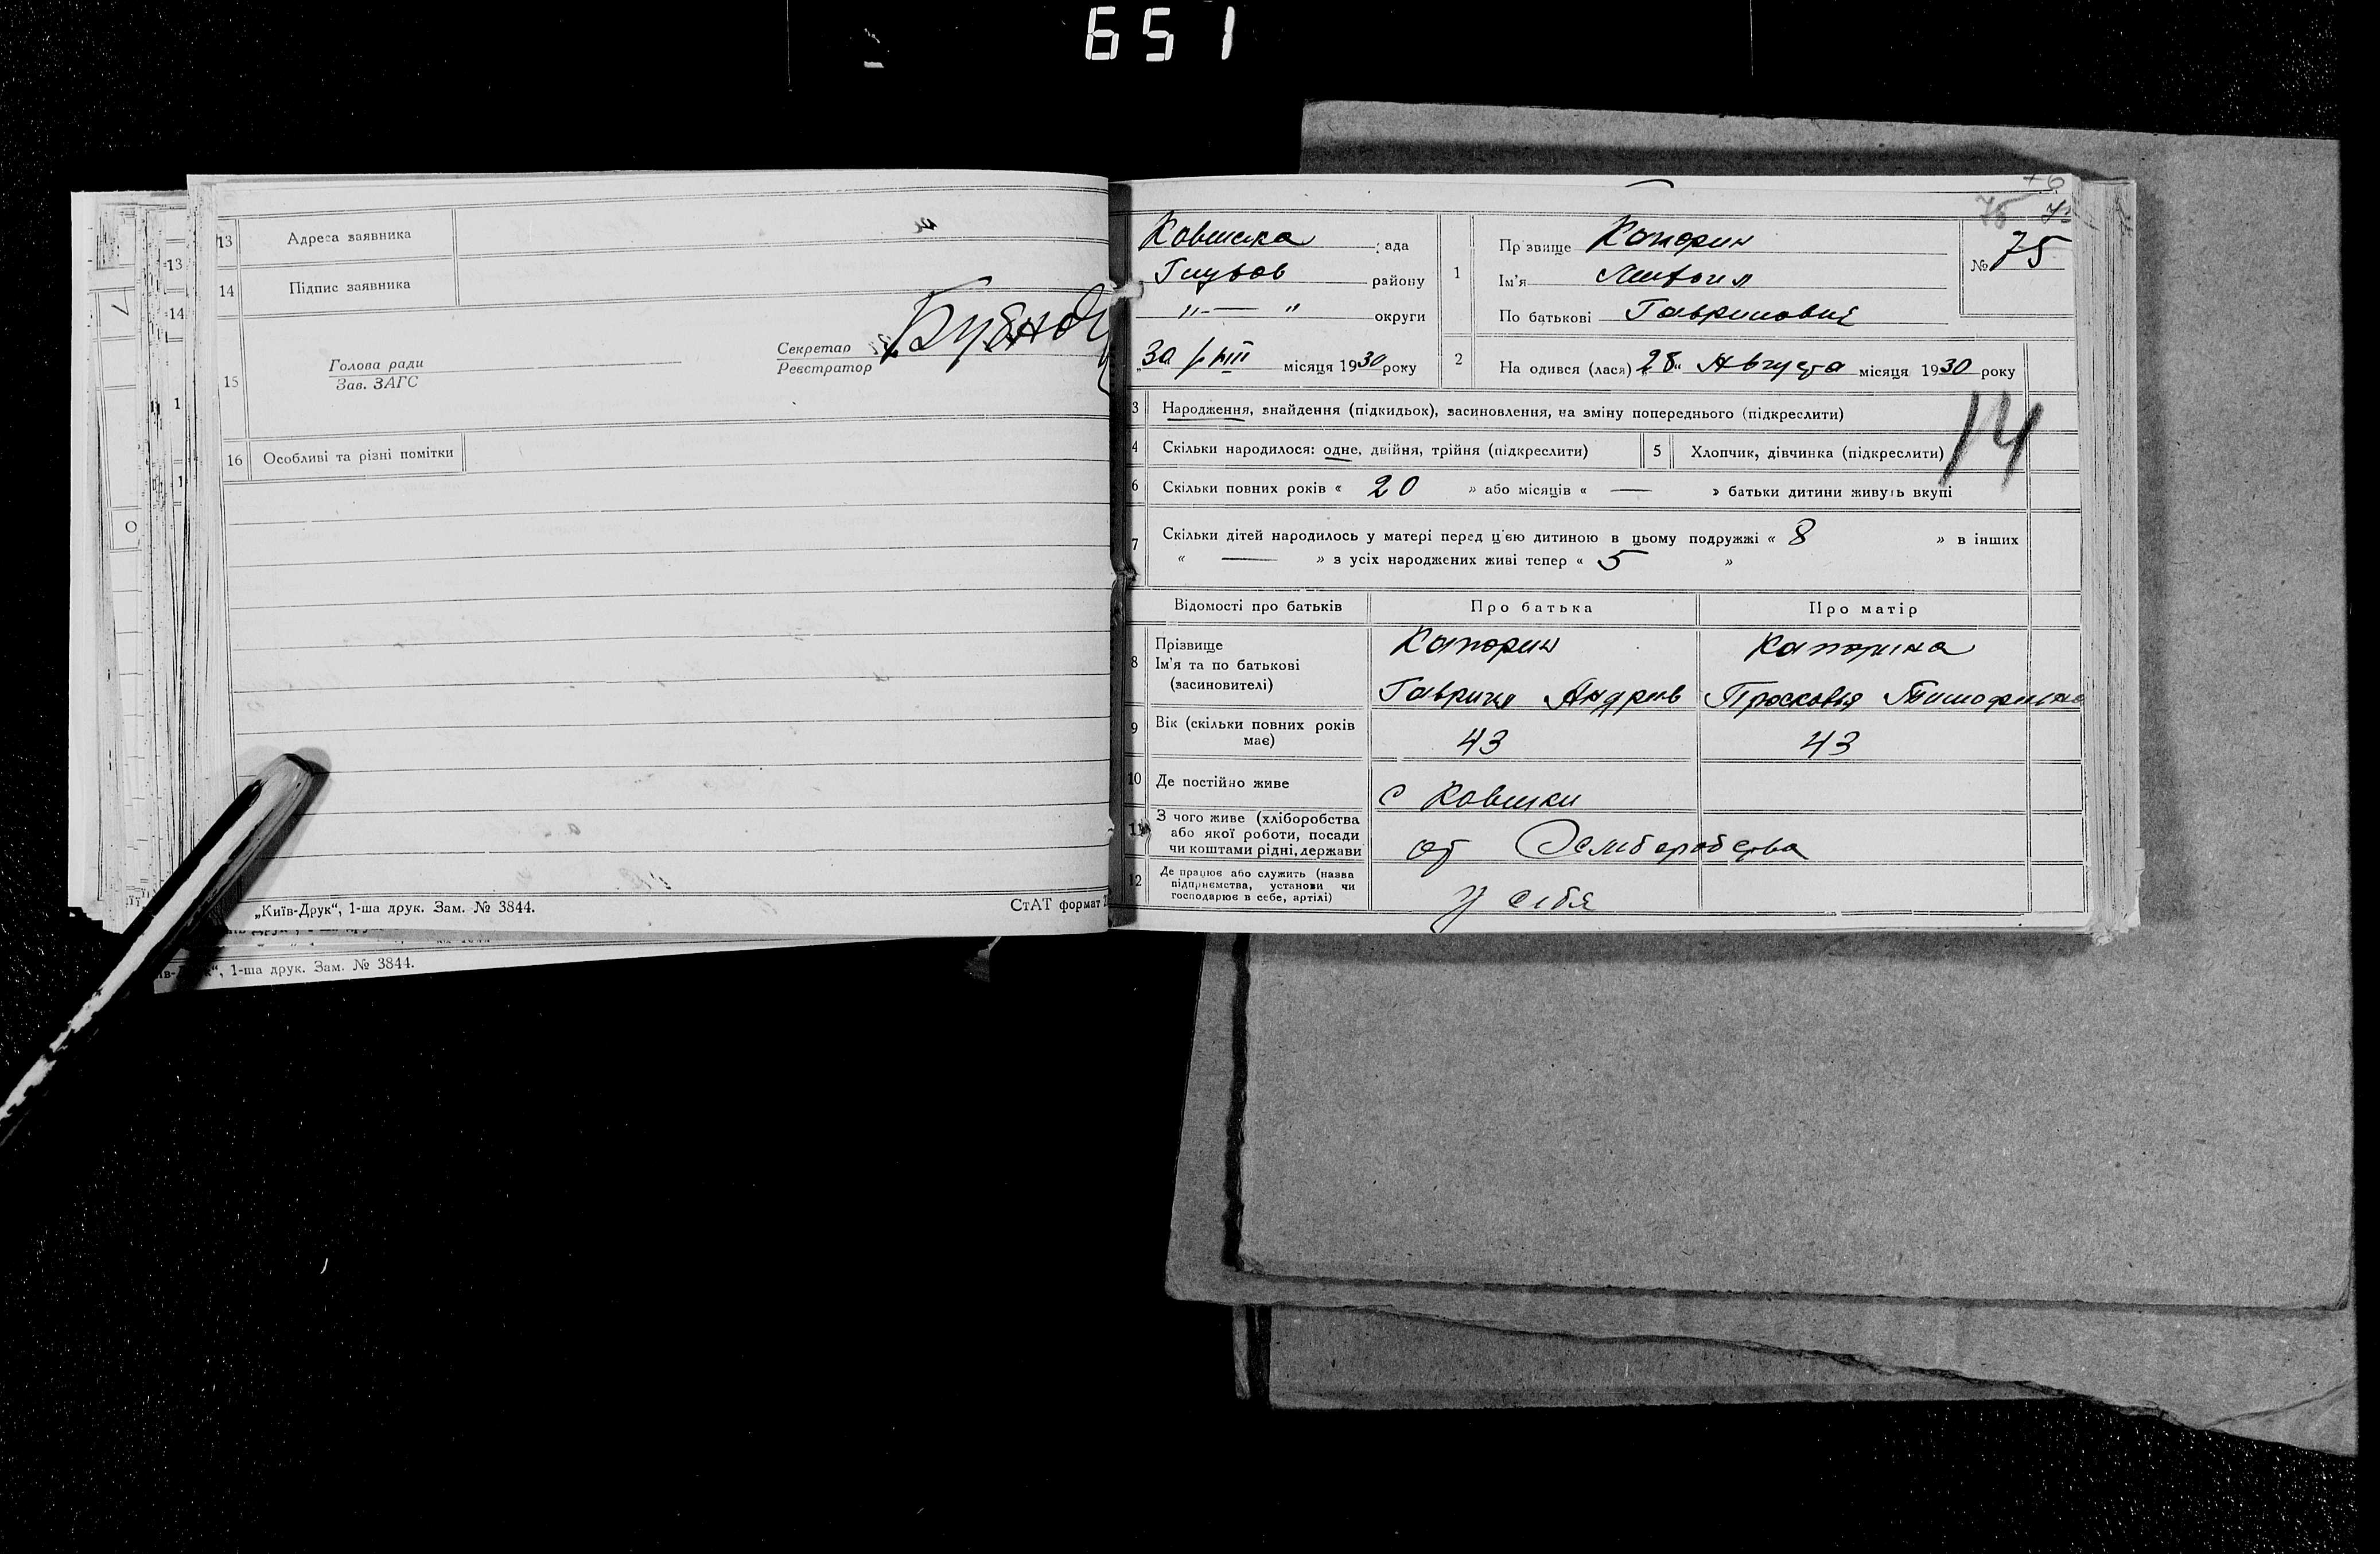 651
13 Адреса заявника
14 Підпис заявника
15 Голова ради
Зав. ЗАГС
Секретар
Реєстратор
16 Особливі та різні помітки
„Київ-Друк“, 1-ша друк. Зам. № 3844.
СтАТ формат
1-ша друк. Зам. № 3844.
75
Ковшска рада
Глухов району
"—" округи
30/VIII місяця 1930 року
1 Прізвище Капорин
Ім'я
По батькові Гаврилович
№ 75
2 Народився (лася) „28“ Августа місяця 1930 року
3 Народження, знайдення (підкидьок), засиновлення, на зміну попереднього (підкреслити)
14
4 Скільки народилося: одне, двійня, трійня (підкреслити) 5 Хлопчик, дівчинка (підкреслити)
6 Скільки повних років « 20 » або місяців « — » батьки дитини живуть вкупі
7 Скільки дітей народилось у матері перед цією дитиною в цьому подружжі « 8 » в інших
« — » з усіх народжених живі тепер « 5 »
Відомості про батьків Про батька Про матір
8 Прізвище Капорин Капорина
Ім'я та по батькові
(засиновителі) Гаврило Андреев Прасковья Тимофеевна
9 Вік (скільки повних років має) 43 43
10 Де постійно живе с Ковшки
11 З чого живе (хліборобства
або якої роботи, посади
чи коштами рідні, держави
от Землеробства
12 Де працює або служить (назва
підприємства, установи чи
господарює в себе, артілі)
у себя